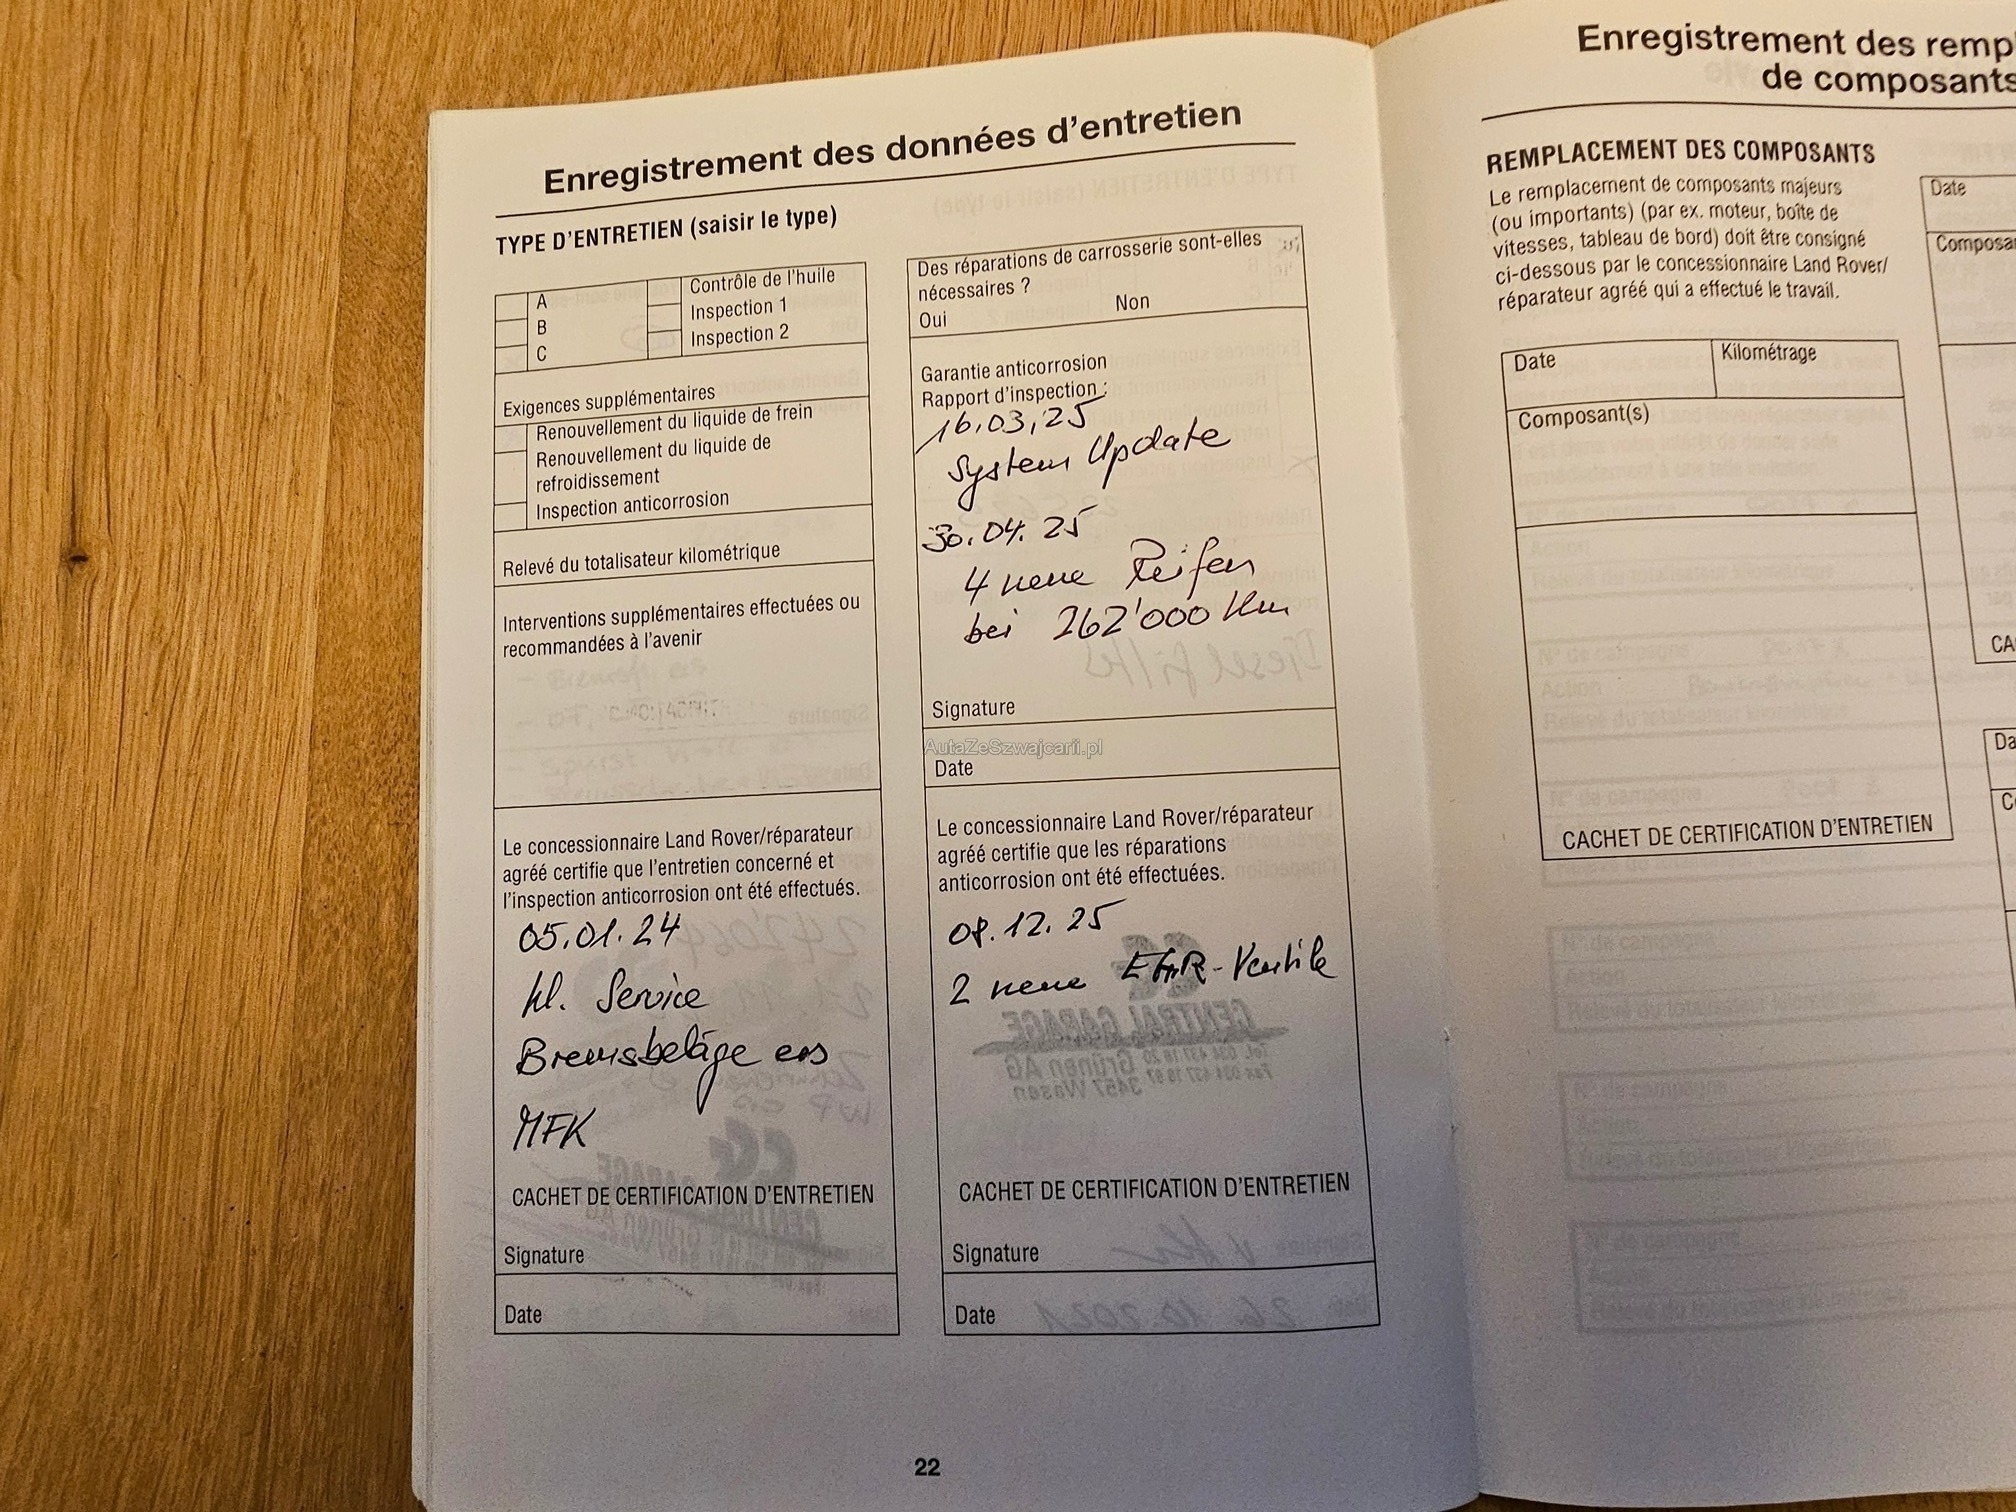 Enregistrement des données d'entretien
TYPE D'ENTRETIEN (saisir le type)
A
B
C
Contrôle de l'huile
Inspection 1
Inspection 2
Exigences supplémentaires
Renouvellement du liquide de frein
Renouvellement du liquide de
refroidissement
Inspection anticorrosion
Relevé du totalisateur kilométrique
Interventions supplémentaires effectuées ou
recommandées à l'avenir
Le concessionnaire Land Rover/réparateur
agréé certifie que l'entretien concerné et
l'inspection anticorrosion ont été effectués.
05.01.24
kl. Service
Bremsbeläge ers
MFK
CACHET DE CERTIFICATION D'ENTRETIEN
Signature
Date
Des réparations de carrosserie sont-elles
nécessaires ?
Oui Non
Garantie anticorrosion
Rapport d'inspection :
16.03.25
System Update
30.04.25
4 neue Reifen
bei 262'000 Km
Signature
AutaZeSzwajcarii.pl
Date
Le concessionnaire Land Rover/réparateur
agréé certifie que les réparations
anticorrosion ont été effectuées.
08.12.25
2 neue EGR-Ventile
CACHET DE CERTIFICATION D'ENTRETIEN
Signature
Date
22
Enregistrement des remp
de composants
REMPLACEMENT DES COMPOSANTS
Le remplacement de composants majeurs
(ou importants) (par ex. moteur, boîte de
vitesses, tableau de bord) doit être consigné
ci-dessous par le concessionnaire Land Rover/
réparateur agréé qui a effectué le travail.
Date Kilométrage
Composant(s)
CACHET DE CERTIFICATION D'ENTRETIEN
Date
Composa
CA
Da